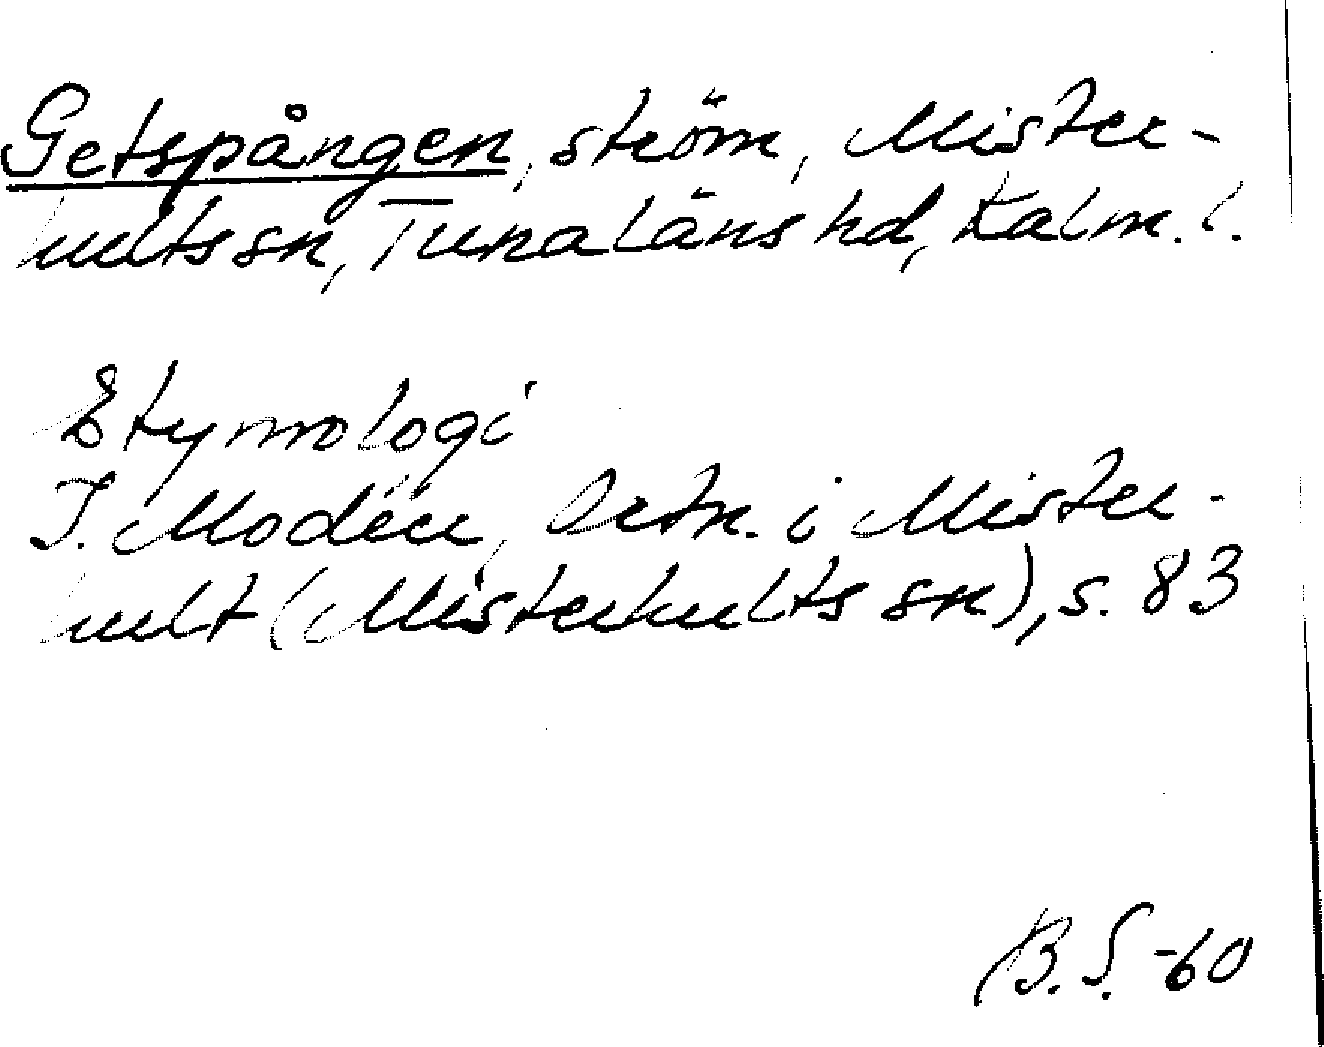 Getspången, ström, Mister-
hults sn, Tunaläns hd, Kalm. l.
Etymologi
I. Modéer, Ortn. i Mister-
hult (Misterhults sn), s. 83
B.S. -60